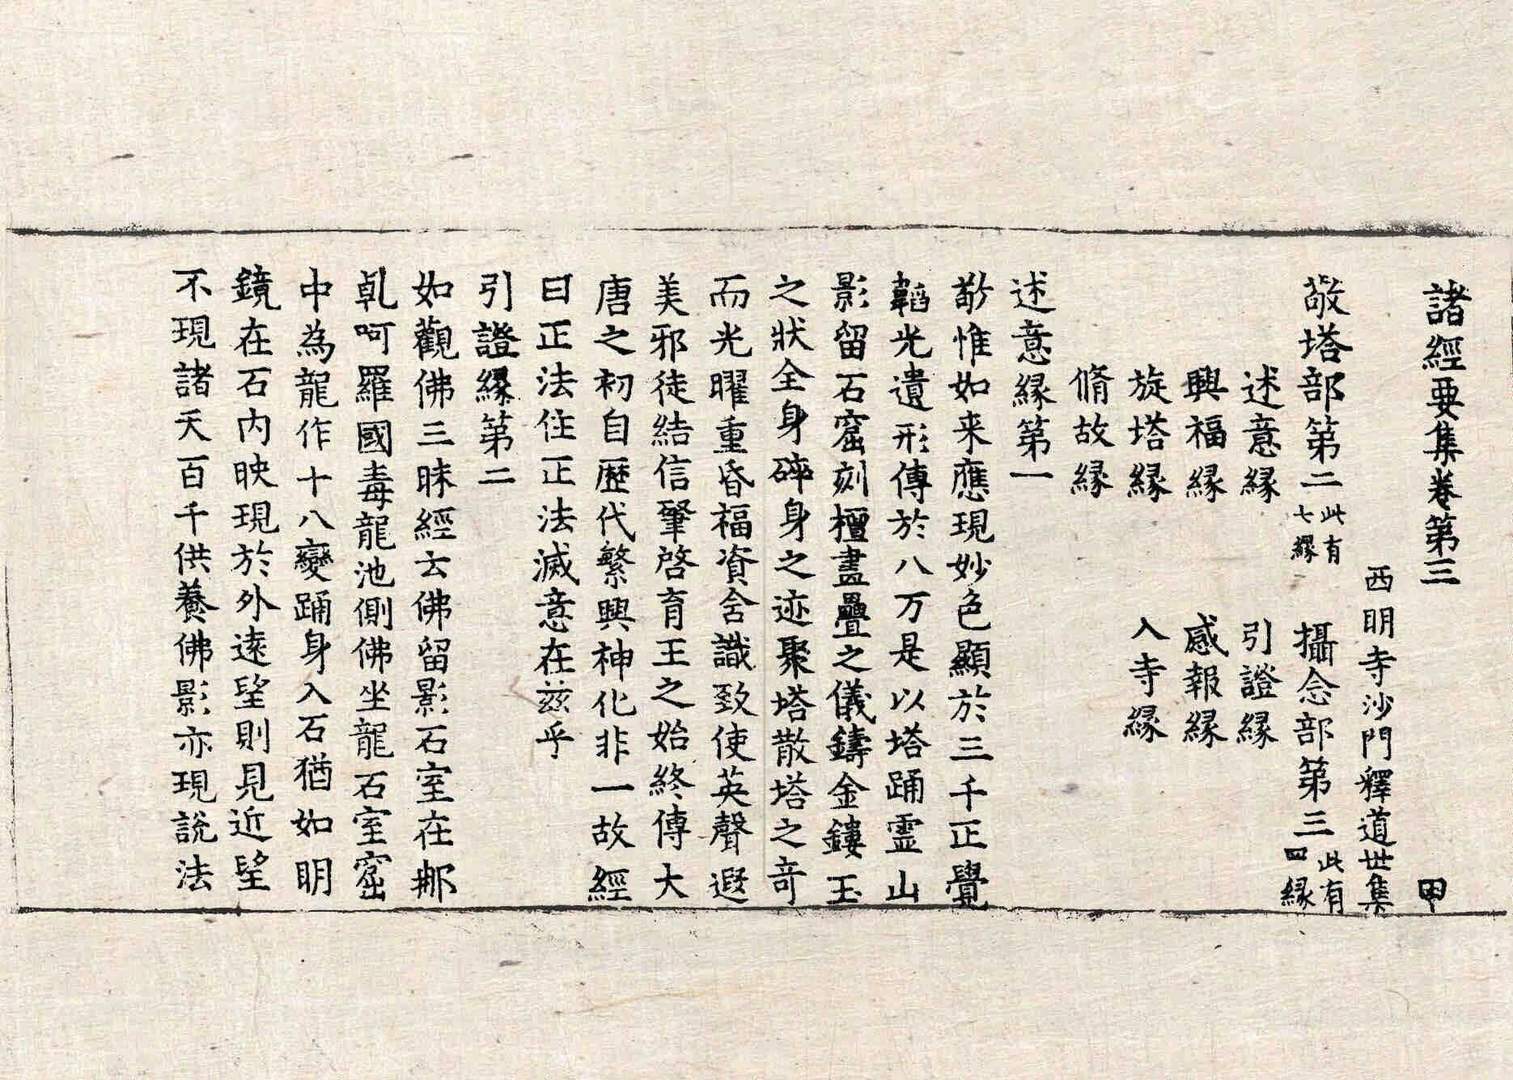 諸經要集卷第三 甲
西明寺沙門釋道世集
敬塔部第二 此有七縁 攝念部第三 此有四縁
述意縁 引證縁
興福縁 感報縁
旋塔縁 入寺縁
脩故縁
述意縁第一
敬惟如来應現妙色顯於三千正覺
韜光遺形傳於八万是以塔踊霊山
影留石窟刻檀畫疊之儀鑄金鏤玉
之狀全身碎身之迹聚塔散塔之奇
而光曜重昏福資含識致使英聲遐
美邪徒結信肇啓育王之始終傳大
唐之初自歴代繁興神化非一故經
曰正法住正法滅意在兹乎
引證縁第二
如觀佛三昧經云佛留影石室在那
乹呵羅國毒龍池側佛坐龍石室窟
中為龍作十八變踊身入石猶如明
鏡在石内映現於外遠望則見近望
不現諸天百千供養佛影亦現說法